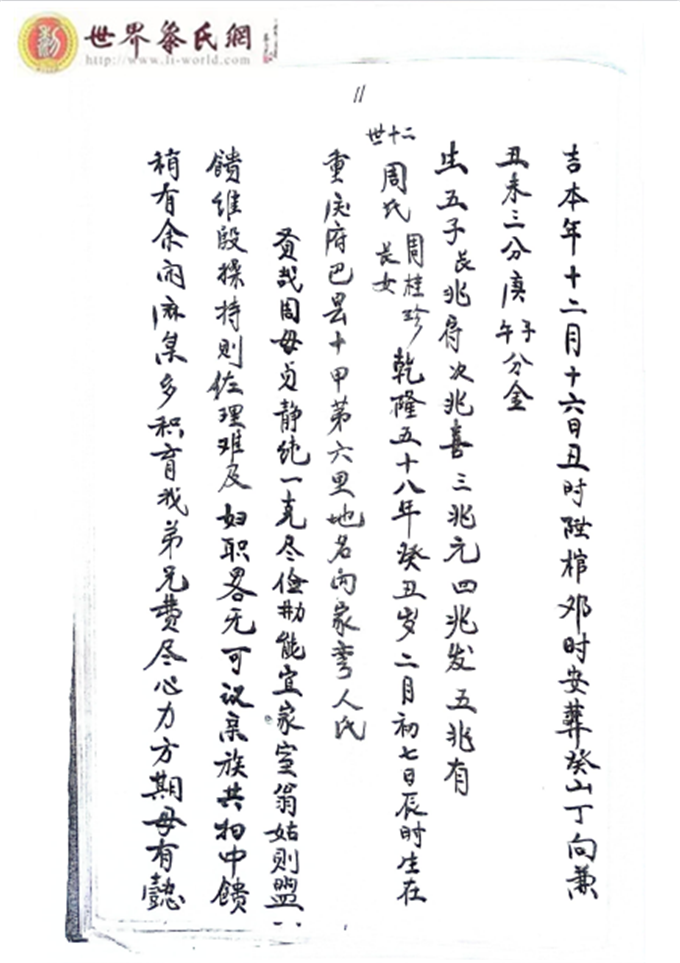 世界蔡氏網
http://www.li-world.com
11
吉本年十二月十六日丑时陞棺卯时安葬癸山丁向兼
丑未三分庚午子分金
生五子长兆得次兆喜三兆元四兆发五兆有
十二世
周氏 周桂珍长女 乾隆五十八年癸丑岁二月初七日辰时生在
重庆府巴县十甲第六里地名向家湾人氏
贤哉周母贞静纯一克尽俭勤能宜家室翁姑则盥
馈维殷操持则佐理难及妇职畧无可议亲族共扫中馈
稍有余闲麻枲多积育我弟兄费尽心力方期母有懿